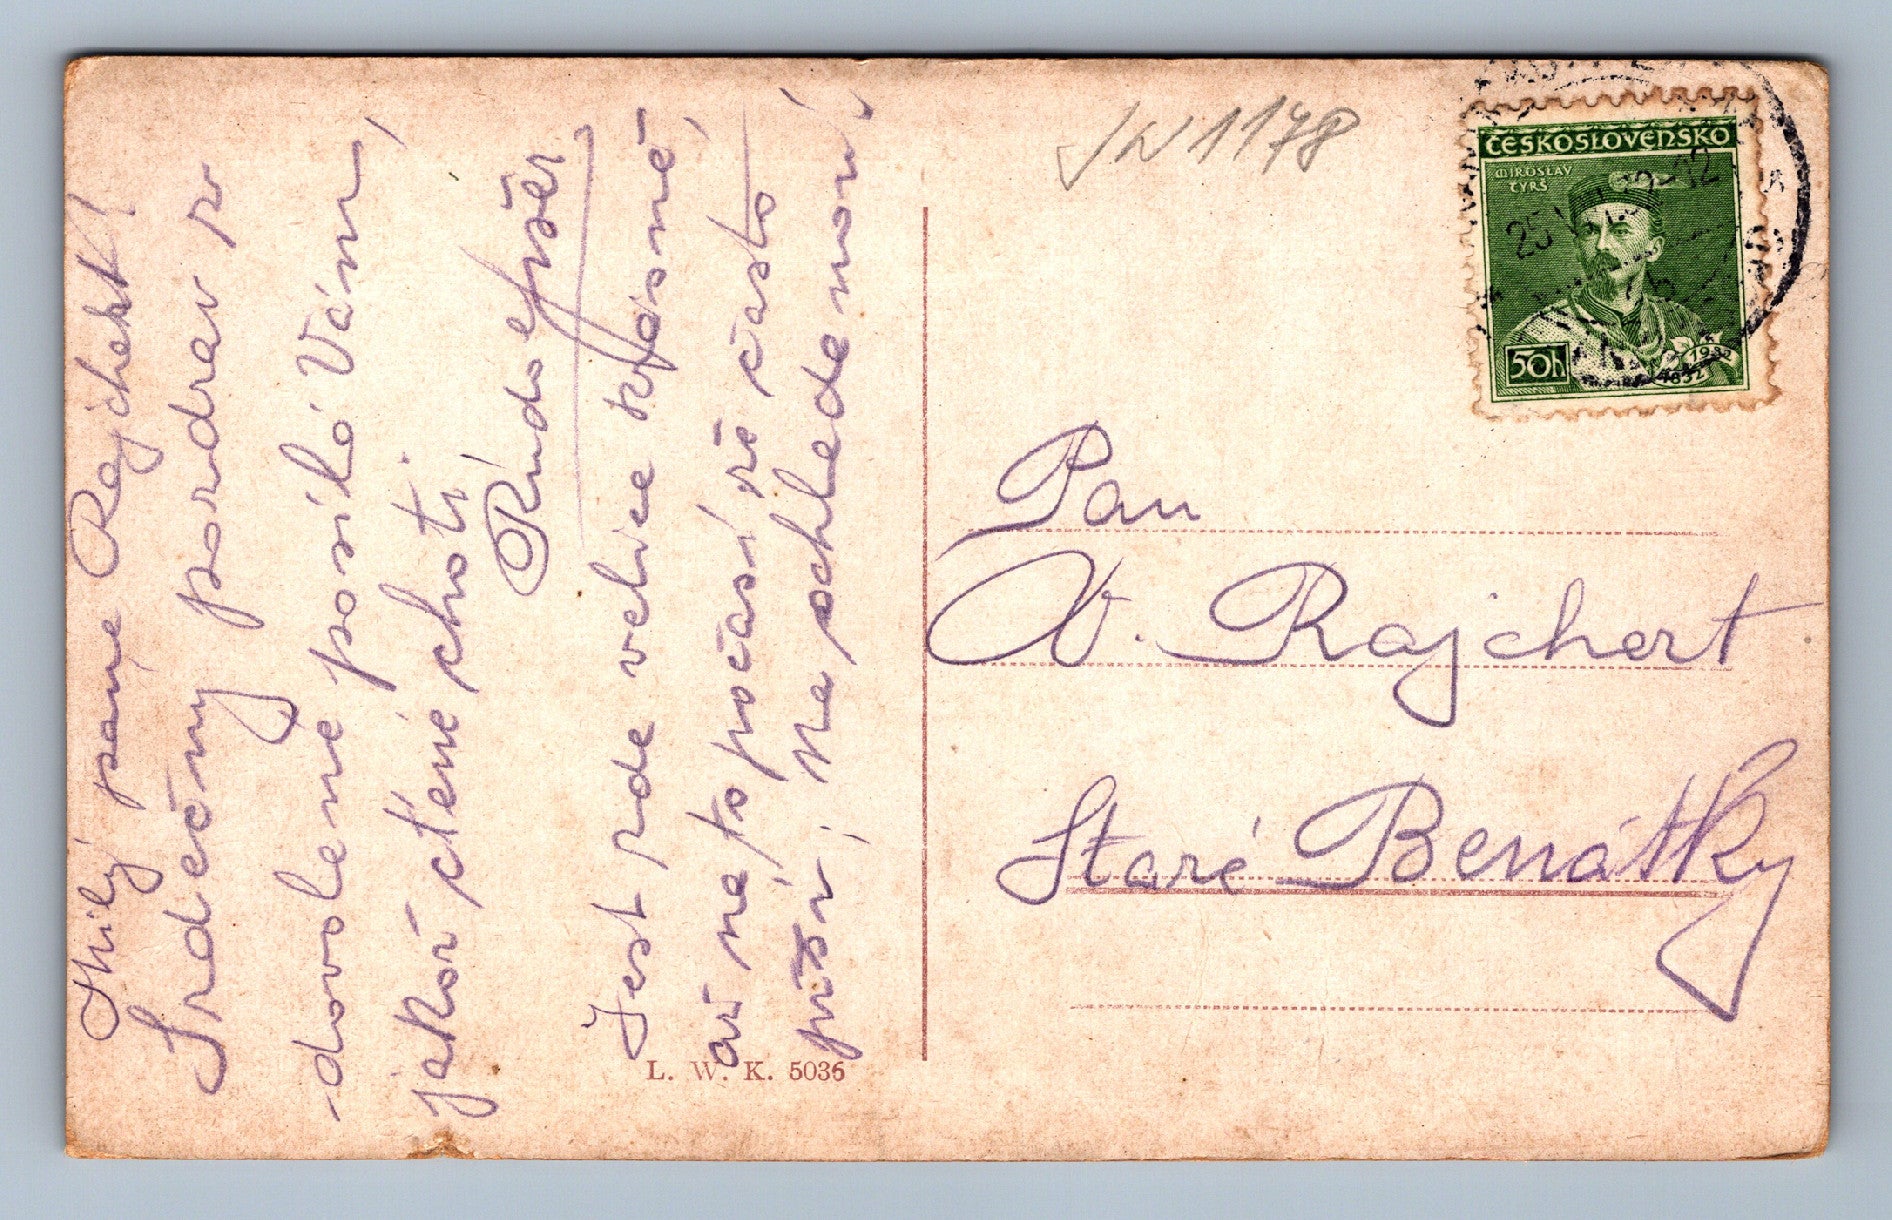 Milý pane Rajchert!
Srdečný pozdrav z
dovolené posílá Vám,
jakož i ctěné choti
Rudolf
Jest zde velice krásně,
až na to počasí že často
prší, Na schledanou,
JW 1178
ČESKOSLOVENSKO
MIROSLAV
TYRŠ
50h
1932
1832
25
-12
Pan
V. Rajchert
Staré Benátky
L. W. K. 5036